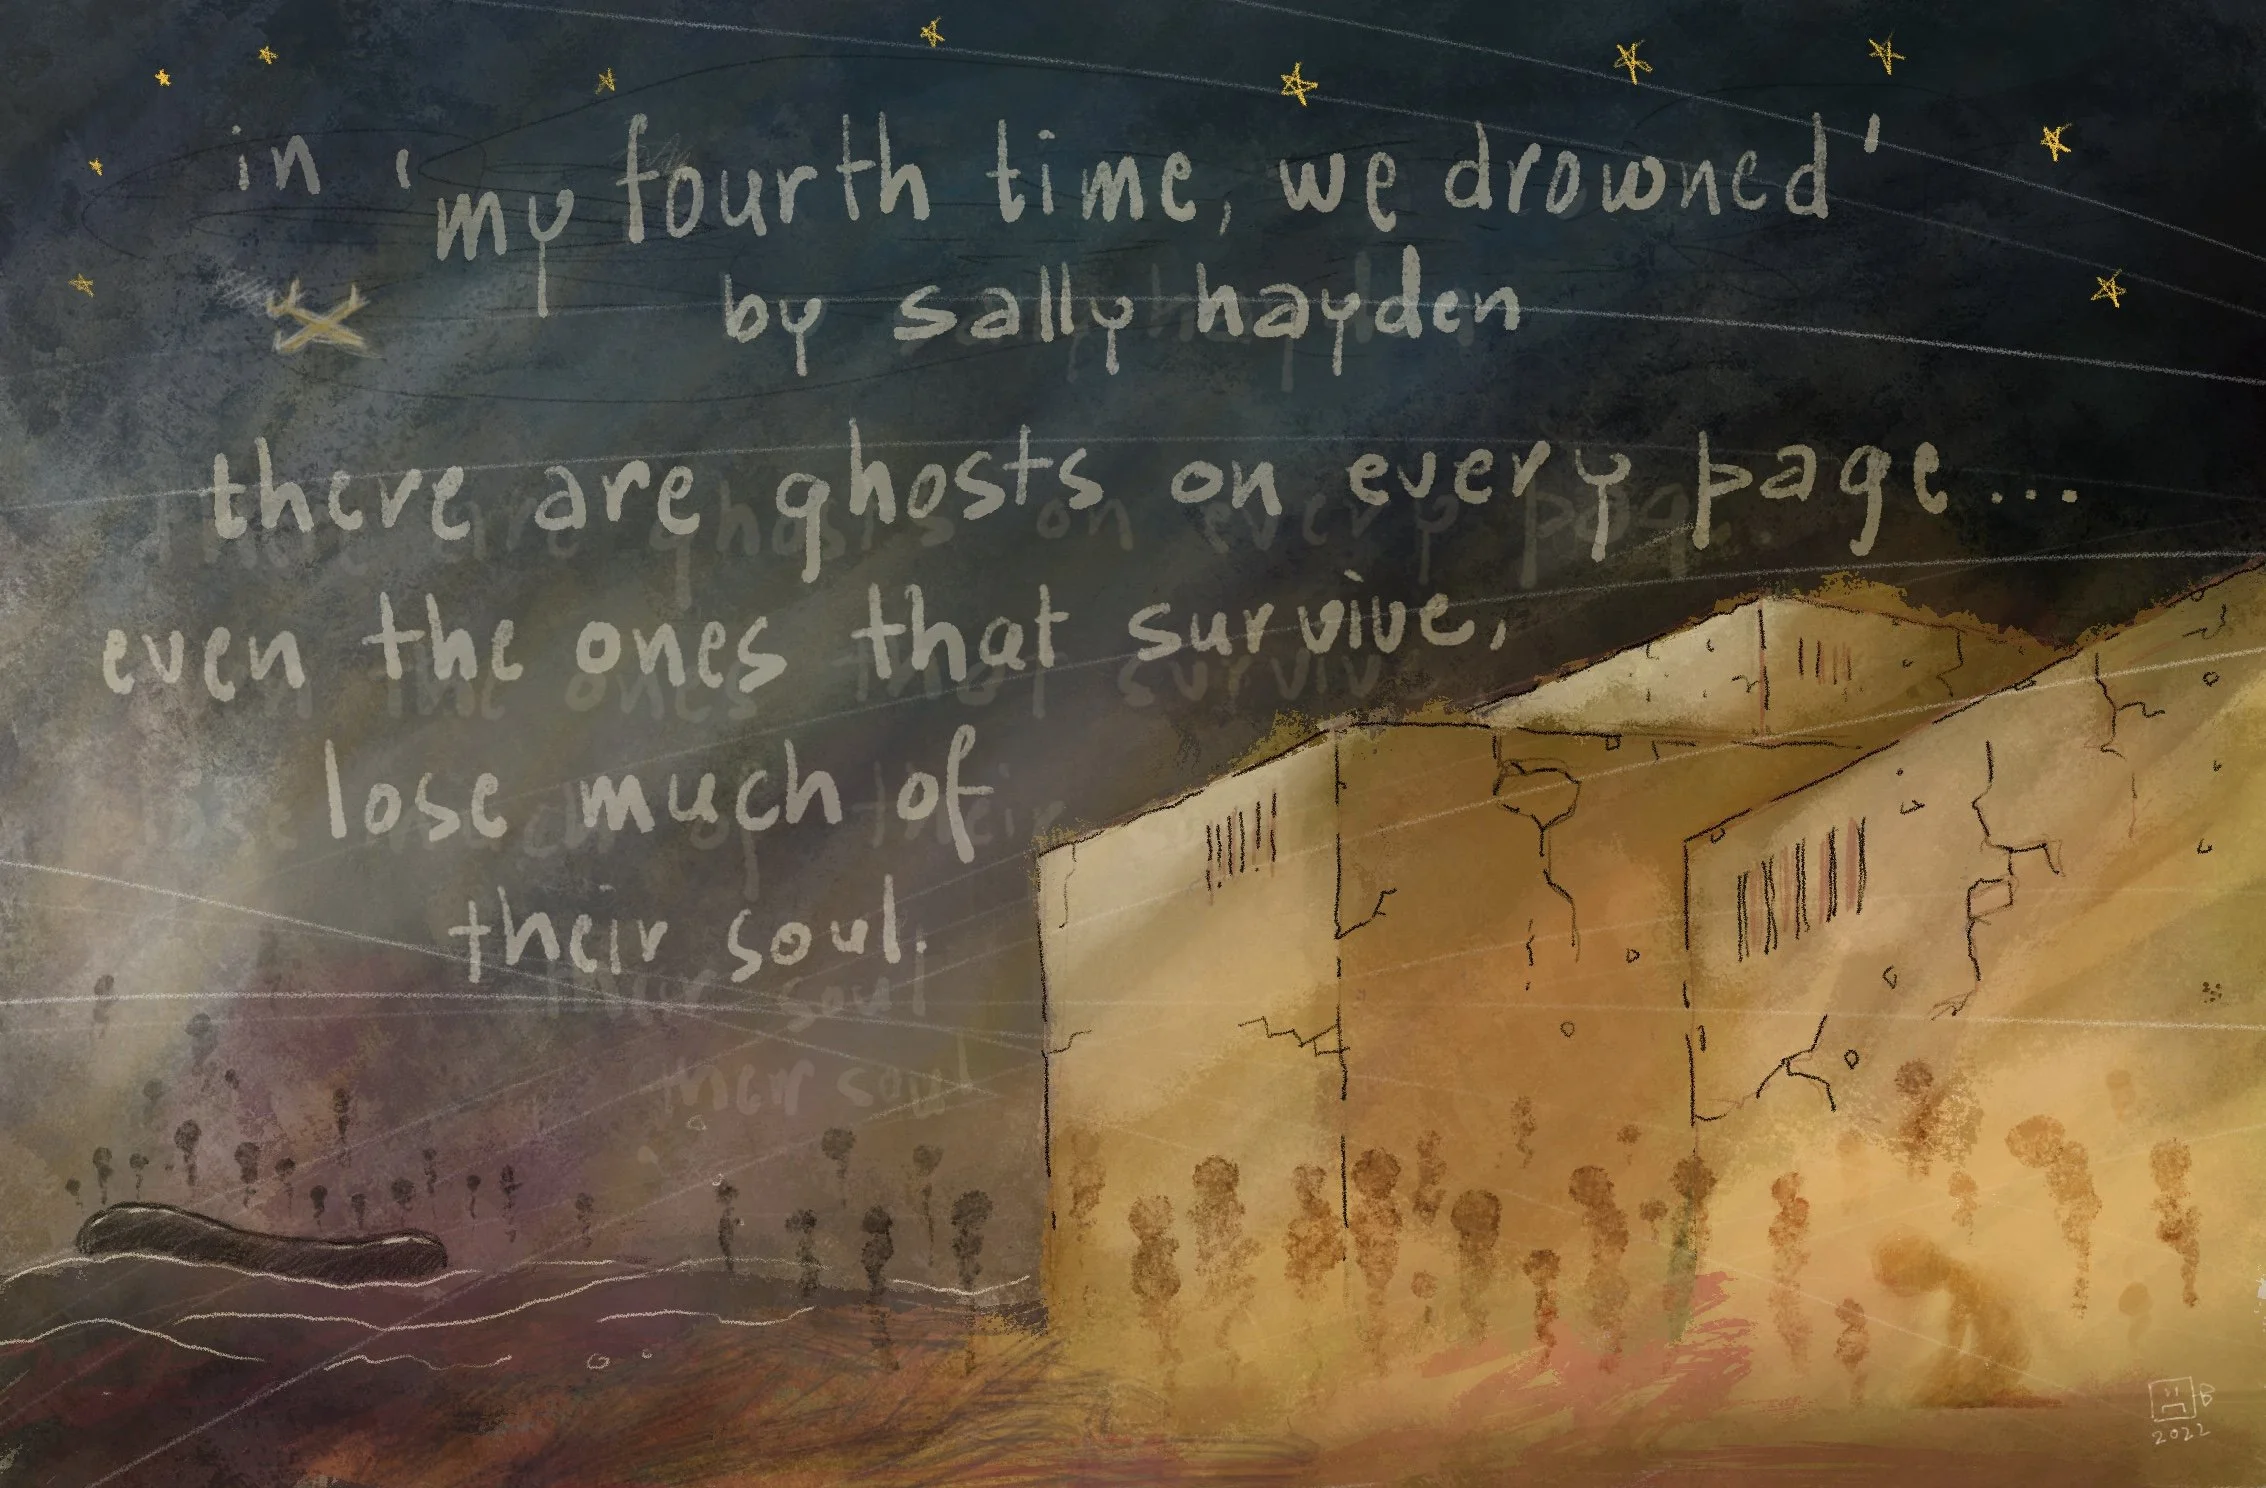 in 'my fourth time, we drowned'
by sally hayden
there are ghosts on every page...
even the ones that survive,
lose much of
their soul.
their soul
their soul
B
2022